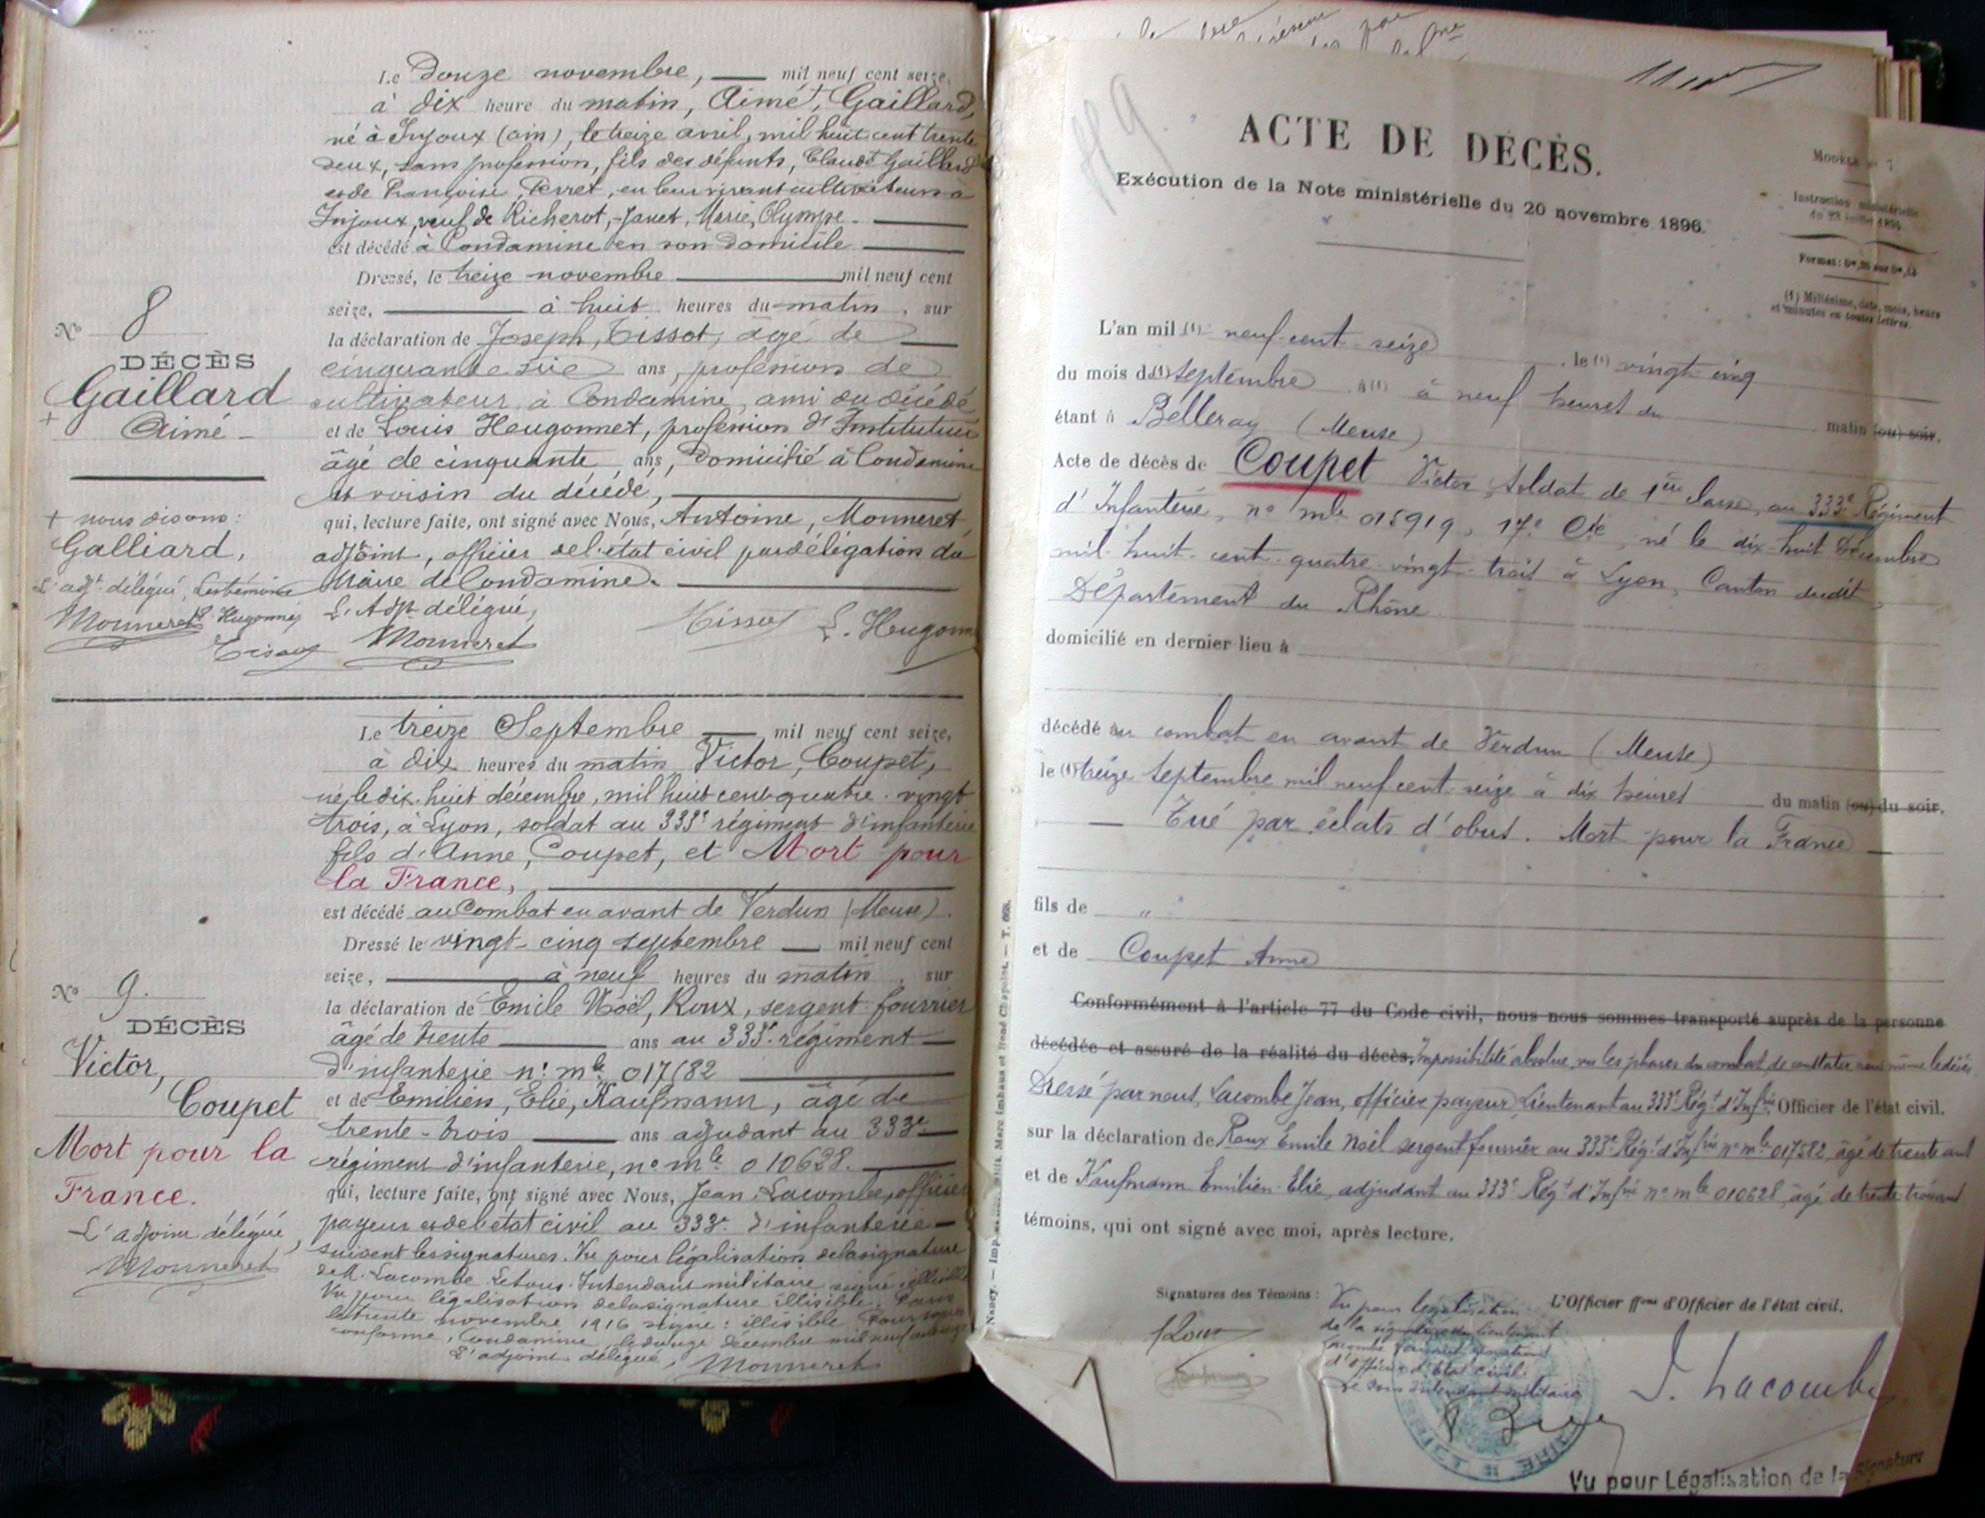 Le Douze novembre, mil neuf cent seize,
à dix heure du matin, Aimé +, Gaillard,
né à Injoux (ain), le treize avril, mil huit cent trente
deux, sans profession, fils des défunts, Claude Gaillard
et de Françoise Perret, en leur vivant cultivateurs à
Injoux, veuf de Richerot, Janet, Marie, Olympe
est décédé à Condamine en son domicile
Dressé, le treize novembre mil neuf cent
seize, à huit heures du matin, sur
la déclaration de Joseph, Tissot, âgé de
cinquante six ans, profession de
cultivateur à Condamine, ami du décédé
et de Louis Heugonnet, profession d'Instituteur
âgé de cinquante ans, domicilié à Condamine
et voisin du décédé,
qui, lecture faite, ont signé avec Nous, Antoine, Monneret,
adjoint, officier de l'état civil par délégation du
Maire de Condamine.
L'Adjt délégué,
Monneret Tissot L. Heugonnet
No 8
DÉCÈS
Gaillard
+
Aimé
+ nous disons:
Galliard,
L'adjt délégué, Les témoins
Monneret L. Heugonnet
Tissot
Le treize Septembre mil neuf cent seize,
à dix heures du matin Victor, Coupet,
né le dix-huit décembre, mil huit cent quatre-vingt
trois, à Lyon, soldat au 333e régiment d'infanterie
fils d'Anne, Coupet, et Mort pour
la France,
est décédé au Combat en avant de Verdun (Meuse).
Dressé le vingt-cinq septembre mil neuf cent
seize, à neuf heures du matin, sur
la déclaration de Emile Noël, Roux, sergent-fourrier
âgé de trente ans au 333e régiment
d'infanterie no mle 017582
et de Emilien, Elie, Kaufmann, âgé de
trente-trois ans adjudant au 333e
régiment d'infanterie, no mle 010628.
qui, lecture faite, ont signé avec Nous, Jean Lacombe, officier
payeur et de l'état civil au 333e d'infanterie
suivent les signatures. Vu pour légalisation de la signature
de M. Lacombe Le sous-Intendant militaire signé: illisible
Vu pour légalisation de la signature illisible. Paris
le trente novembre 1916 signé: illisible Pour copie
conforme, Condamine le douze décembre mil neuf cent seize
L'adjoint délégué, Monneret
No 9.
DÉCÈS
Victor,
Coupet
Mort pour la
France.
L'adjoint délégué,
Monneret
No 9
ACTE DE DÉCÈS.
Exécution de la Note ministérielle du 20 novembre 1896.
Modèle no 7
Instruction ministérielle
Format: 0m,36 sur 0m,
(1) Millésime, date, mois, heure
et minutes en toutes lettres.
L'an mil (1) neuf cent seize, le (1) vingt cinq
du mois de (1) septembre à (1) à neuf heures du matin (ou) soir.
étant à Belleray (Meuse)
Acte de décès de Coupet Victor, Soldat de 1ère classe, au 333e Régiment
d'Infanterie, no mle 015919, 17e Cie, né le dix-huit Décembre
mil-huit-cent-quatre-vingt-trois à Lyon, Canton dudit,
Département du Rhône
domicilié en dernier lieu à
décédé au combat en avant de Verdun (Meuse)
le (1) treize septembre mil neuf cent seize à dix heures du matin (ou) du soir.
Tué par éclats d'obus. Mort pour la France
fils de "
et de Coupet Anne
Conformément à l'article 77 du Code civil, nous nous sommes transporté auprès de la personne
décédée et assuré de la réalité du décès. Impossibilité absolue, vu les phases du combat de constater nous même le décès
Dressé par nous, Lacombe Jean, officier payeur Lieutenant au 333e Régt d'Infrie Officier de l'état civil.
sur la déclaration de Roux Emile Noël sergent fourrier au 333e Régt d'Infrie no mle 017582 âgé de trente ans
et de Kaufmann Emilien-Elie, adjudant au 333e Régt d'Infrie no mle 010628, âgé de trente-trois ans
témoins, qui ont signé avec moi, après lecture.
Signatures des Témoins:
Roux
Kaufmann
Vu pour légalisation
de la signature du lieutenant
Lacombe faisant fonctions
d'officier d'Etat civil.
Le Sous Intendant militaire
L'Officier ffons d'Officier de l'état civil.
J. Lacombe
Vu pour Légalisation de la Signature
Nancy. — Imp.